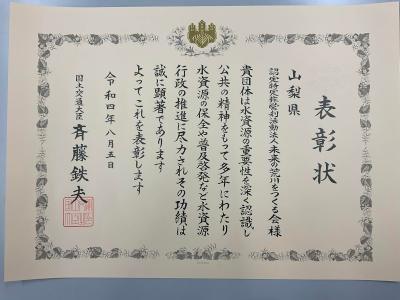 表彰状
山梨県
認定特定非営利活動法人未来の荒川をつくる会様
貴団体は水資源の重要性を深く認識し
公共の精神をもって多年にわたり
水資源の保全や普及啓発など水資源
行政の推進に尽力されその功績は
誠に顕著であります
よってこれを表彰します
令和四年八月五日
国土交通大臣 斉藤鉄夫